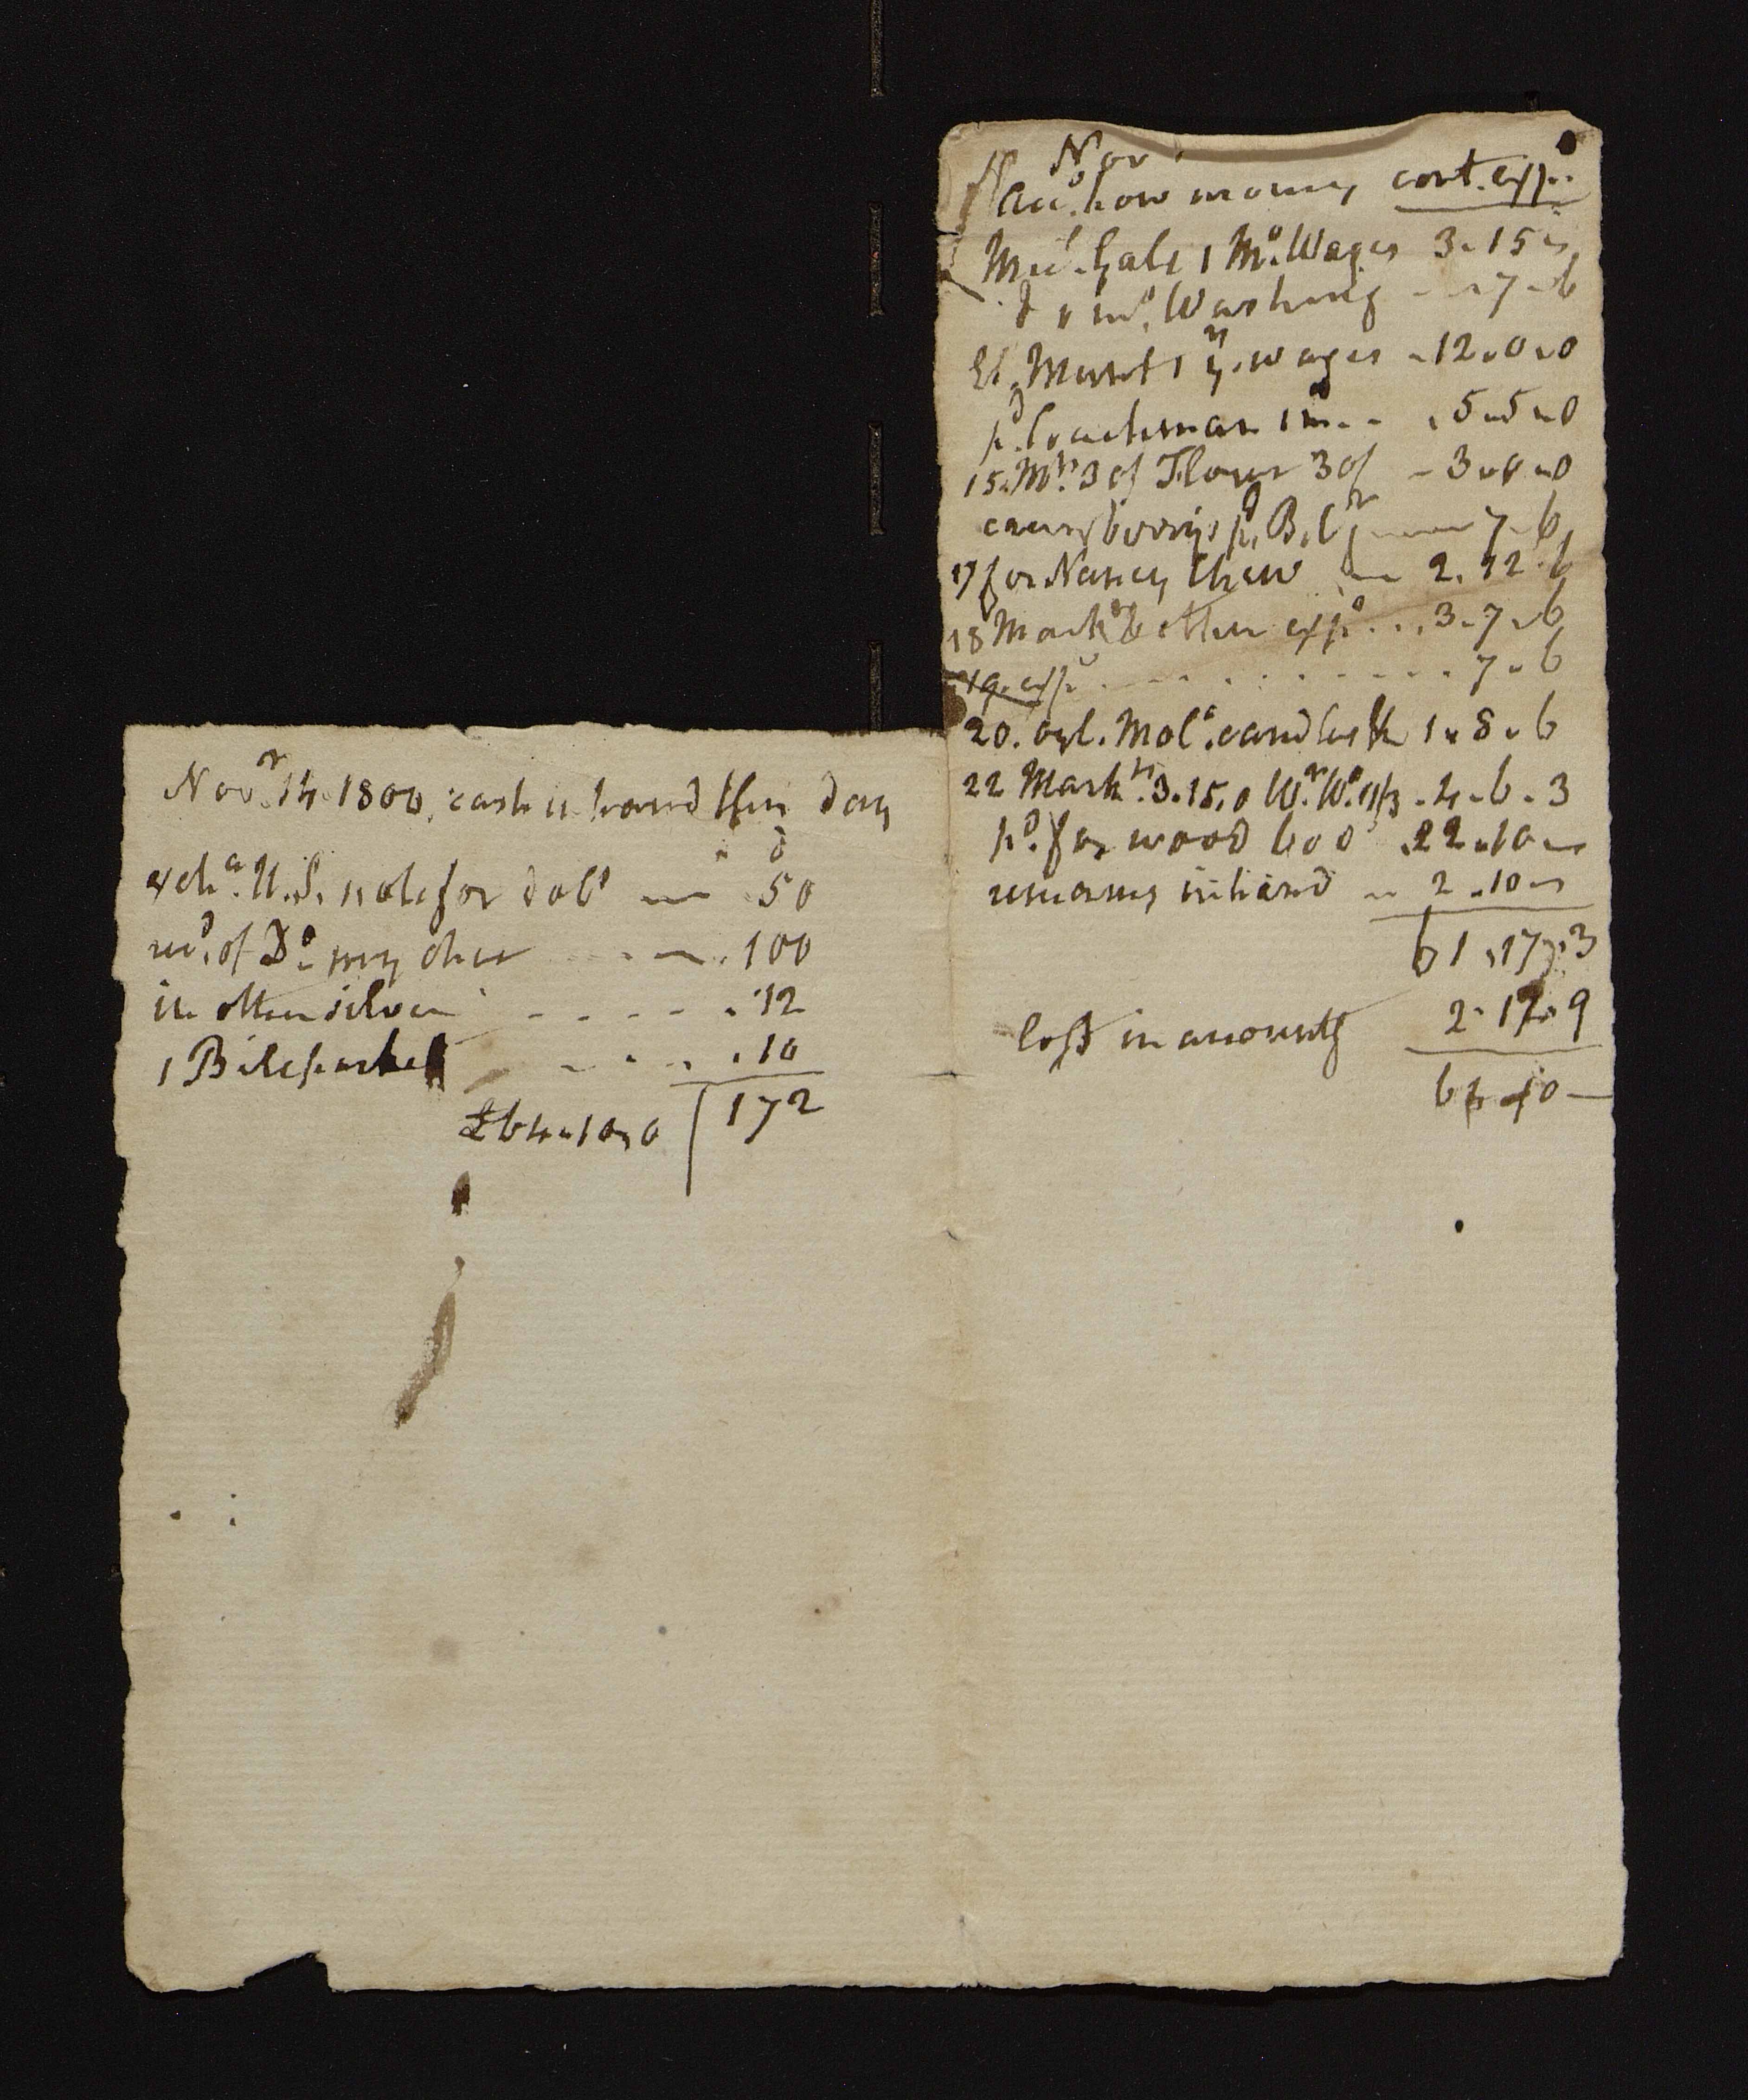 Novr. 14. 1800, cash in hand this day
d
excha. U.S. note for dols — 50
recd. of Do. my chee — . 100
in other silver - - - - . 12
1 Bile parket - - . . 10
£64-10-0 172
Nov.
Acc. how money cont. expe.
Micl. Gale 1 Mo. Wages 3-15-
d 1 mo. Washing - - 7-6
El. Munt 1 qr. wages - 12-0-0
pd. Coachman 1 m.. . 5-5-0
15. Mr. 3 of Flour 3 of - 3-0-0
cranbberrys pd. B.C. — 7-6
17 for Nancy Chew — 2.12.6
18 Markt & other expe. . . . 3-7-6
19. expe. . . . . . . 7-6
20. Mola. candlestk 1-8-6
22 Markt. 3.15.0 . 4-6-3
pd. for wood 600 22-10-
remaing in hand - 2-10-
61.17.3
loss in accounts 2.12.9
64-10-